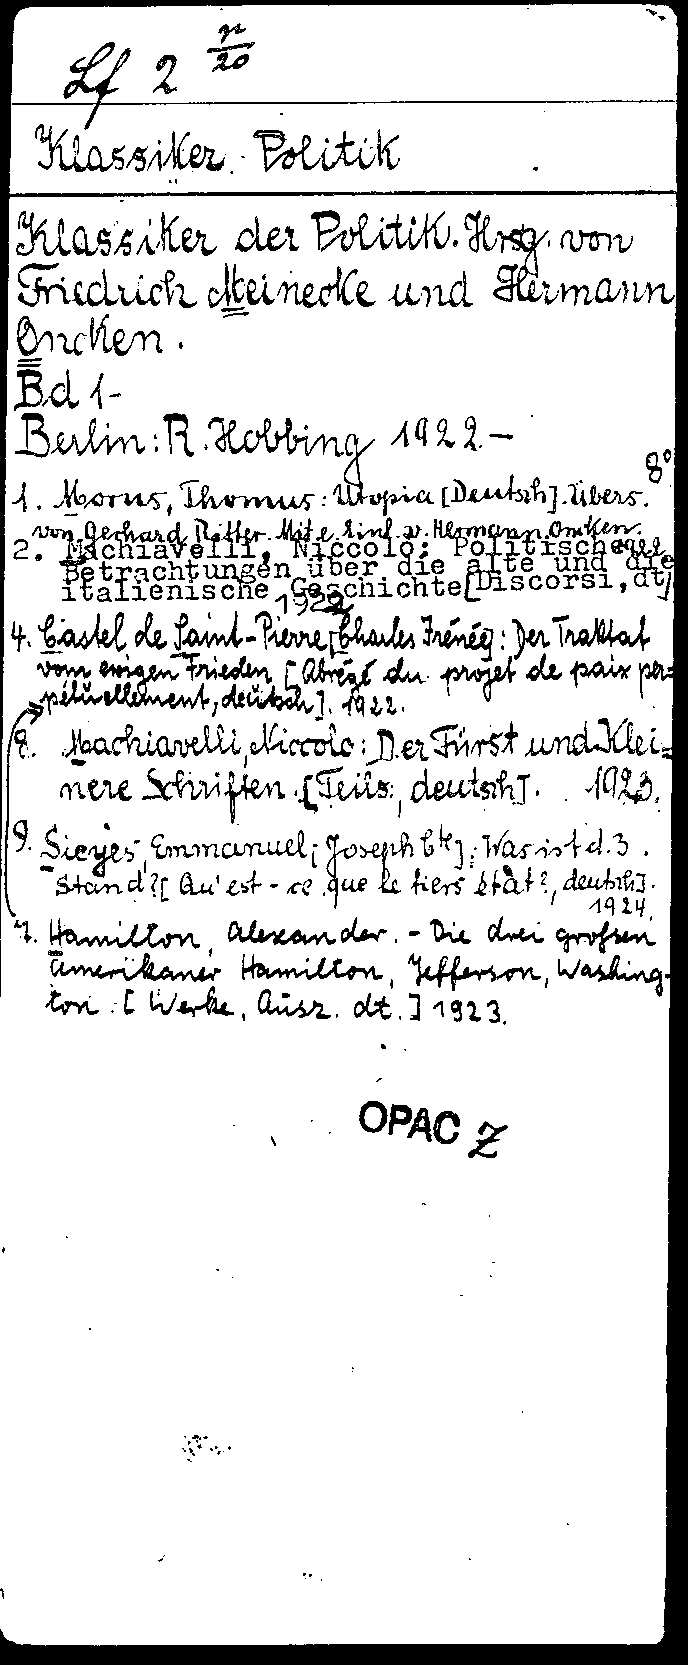 Lf 2 n/20
Klassiker Politik
Klassiker der Politik. Hrsg. von
Friedrich Meinecke und Hermann
Oncken.
Bd 1-
Berlin: R. Hobbing 1922-
8°
1. Morus, Thomus: Utopia [Deutsch]. Übers.
von Gerhard Ritter. Mit e. Einl. v. Hermann Oncken.
2. Machiavelli, Niccolo: Politische
Betrachtungen über die alte und die
italienische Geschichte [Discorsi, dt]
1922
4. Castel de Saint-Pierre, Charles Irénée]: Der Traktat
vom ewigen Frieden [Abrégé du projet de paix per=
pétuellement, deutsch]. 1922.
8. Machiavelli, Niccolo: Der Fürst und Klei=
nere Schriften. [Teils., deutsch]. 1923.
9. Sieyès, Emmanuel; Joseph Cte]: Was ist d. 3.
Stand? [Qu'est-ce que le tiers état?, deutsch].
1924.
7. Hamilton, Alexander. - Die drei grossen
Amerikaner Hamilton, Jefferson, Washing-
ton. [Werke, Ausz. dt.] 1923.
OPAC Z